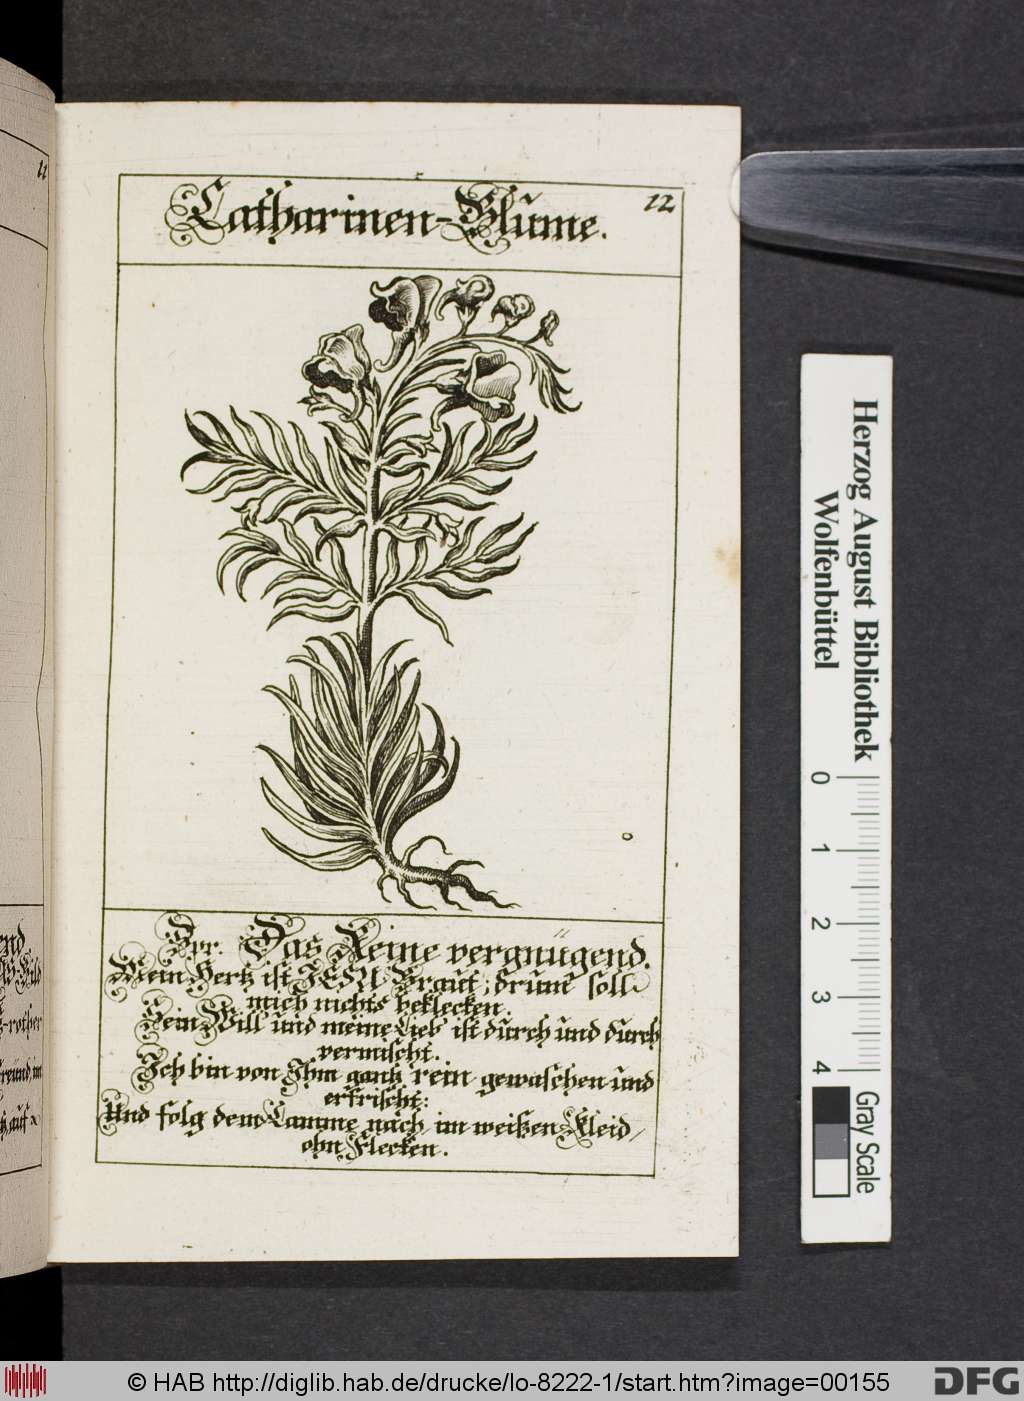 Catharinen-Blume.
12
Spr. Das Reine vergnügend.
Mein Hertz ist JESU Braut; drum soll
mich nichts beklecken.
Sein Will und meine Lieb ist durch und durch
vermischt.
Ich bin von Ihm gantz rein gewaschen und
erfrischt:
Und folg dem Lamme nach im weißen Kleid/
ohn Flecken.
11
end.
Bild
-rother
Herzog August Bibliothek
Wolfenbüttel
0 1 2 3 4
Gray Scale
© HAB http://diglib.hab.de/drucke/lo-8222-1/start.htm?image=00155
DFG